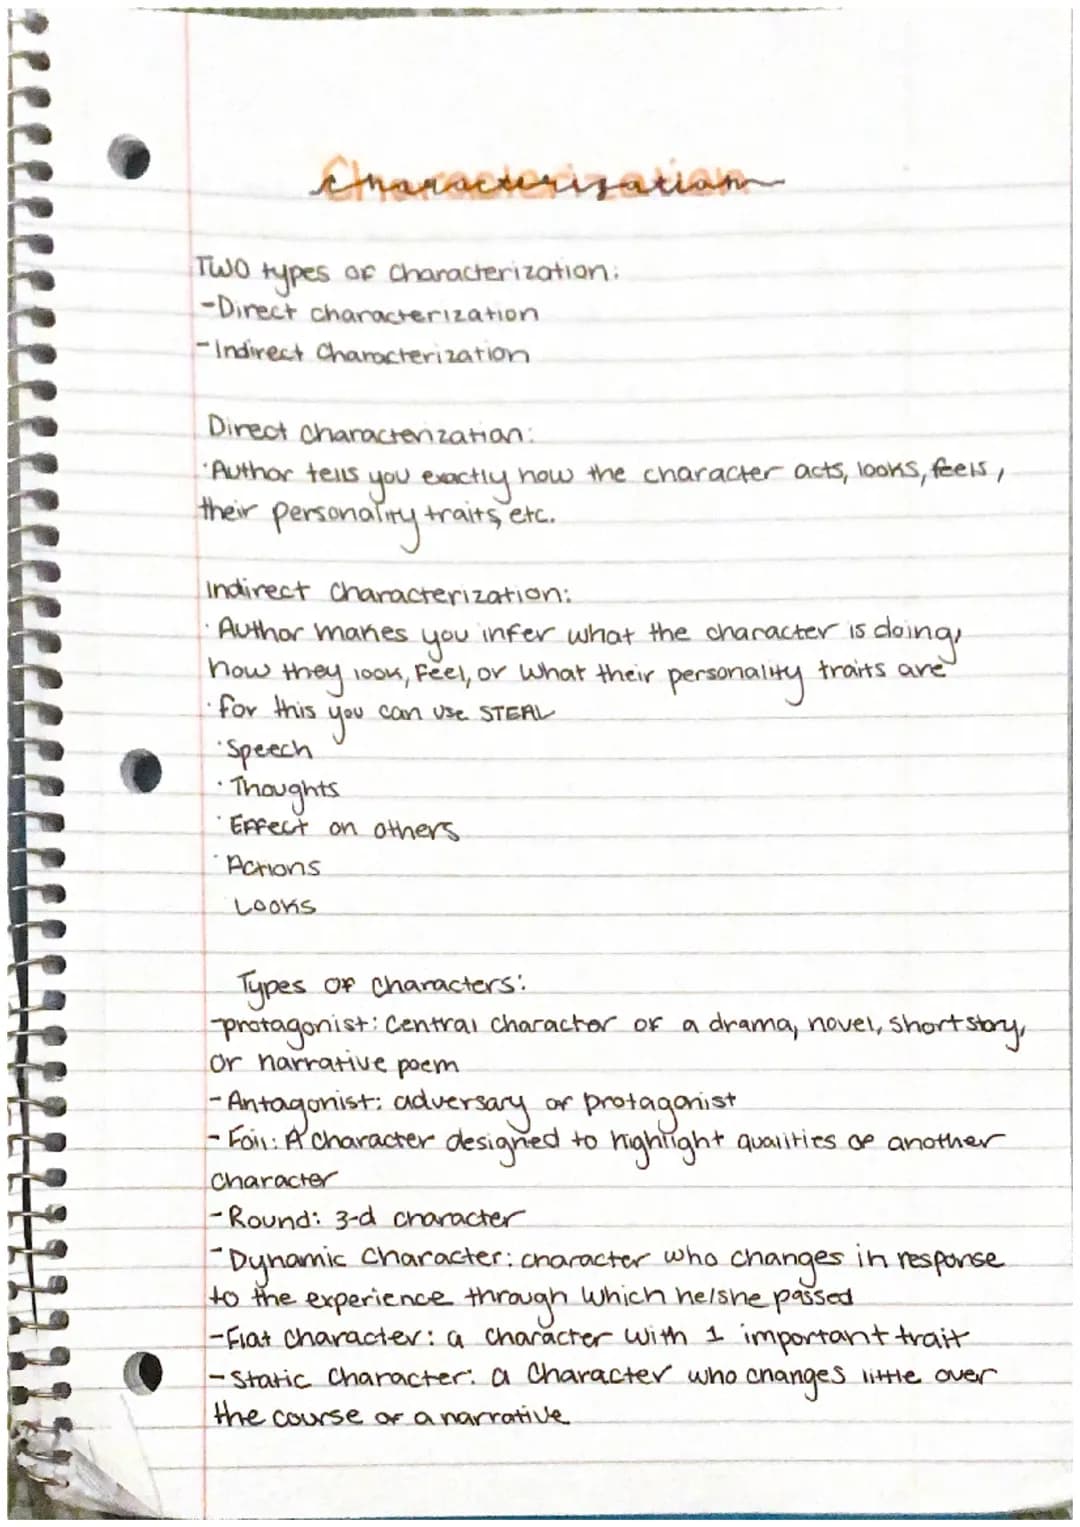 Characterization
Two types of characterization:
-Direct characterization
-Indirect Characterization
Direct characterization:
·Author tells you exactly how the character acts, looks, feels,
their personality traits, etc.
Indirect Characterization:
·Author makes you infer what the character is doing,
how they look, feel, or what their personality traits are
·for this you can use STEAL
·Speech
·Thoughts
·Effect on others
·Actions
Looks
Types of Characters:
-protagonist: Central character of a drama, novel, short story,
or narrative poem
-Antagonist: adversary of protagonist
-Foil: A character designed to highlight qualities of another
character
-Round: 3-d character
-Dynamic Character: character who changes in response
to the experience through which he/she passed
-Flat Character: a character with 1 important trait
-Static Character: a Character who changes little over
the course of a narrative